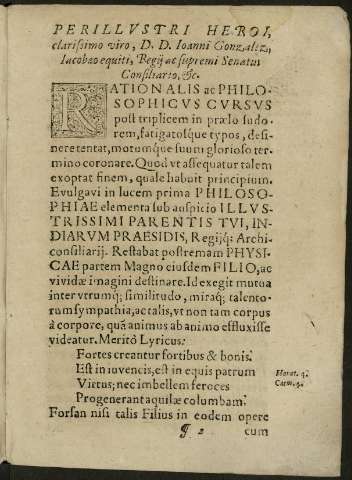 PERILLVSTRI HEROI,
clarissimo viro, D. D. Ioanni Gonzalez,
Iacobæo equiti, Regij ac supremi Senatus
Consiliario, &c.
RATIONALIS ac PHILO-
SOPHICVS CVRSVS
post triplicem in prælo sudo-
rem, fatigatosque typos, desi-
nere tentat, motumque suum glorioso ter-
mino coronare. Quod vt assequatur talem
exoptat finem, quale habuit principium.
Evulgavi in lucem prima PHILOSO-
PHIAE elementa sub auspicio ILLVS-
TRISSIMI PARENTIS TVI, IN-
DIARVM PRAESIDIS, Regijq; Archi-
consiliarij. Restabat postremam PHYSI-
CAE partem Magno eiusdem FILIO, ac
vividæ imagini destinare. Id exegit mutua
inter vtrumq; similitudo, miraq; talento-
rum sympathia, ac talis, vt non tam corpus
à corpore, quã animus ab animo effluxisse
videatur. Meritò Lyricus:
Fortes creantur fortibus & bonis:
Est in iuvencis, est in equis patrum
Virtus; nec imbellem feroces
Progenerant aquilæ columbam.
Horat. 4.
Carm. 4.
Forsan nisi talis Filius in eodem opere
¶ 2 cum